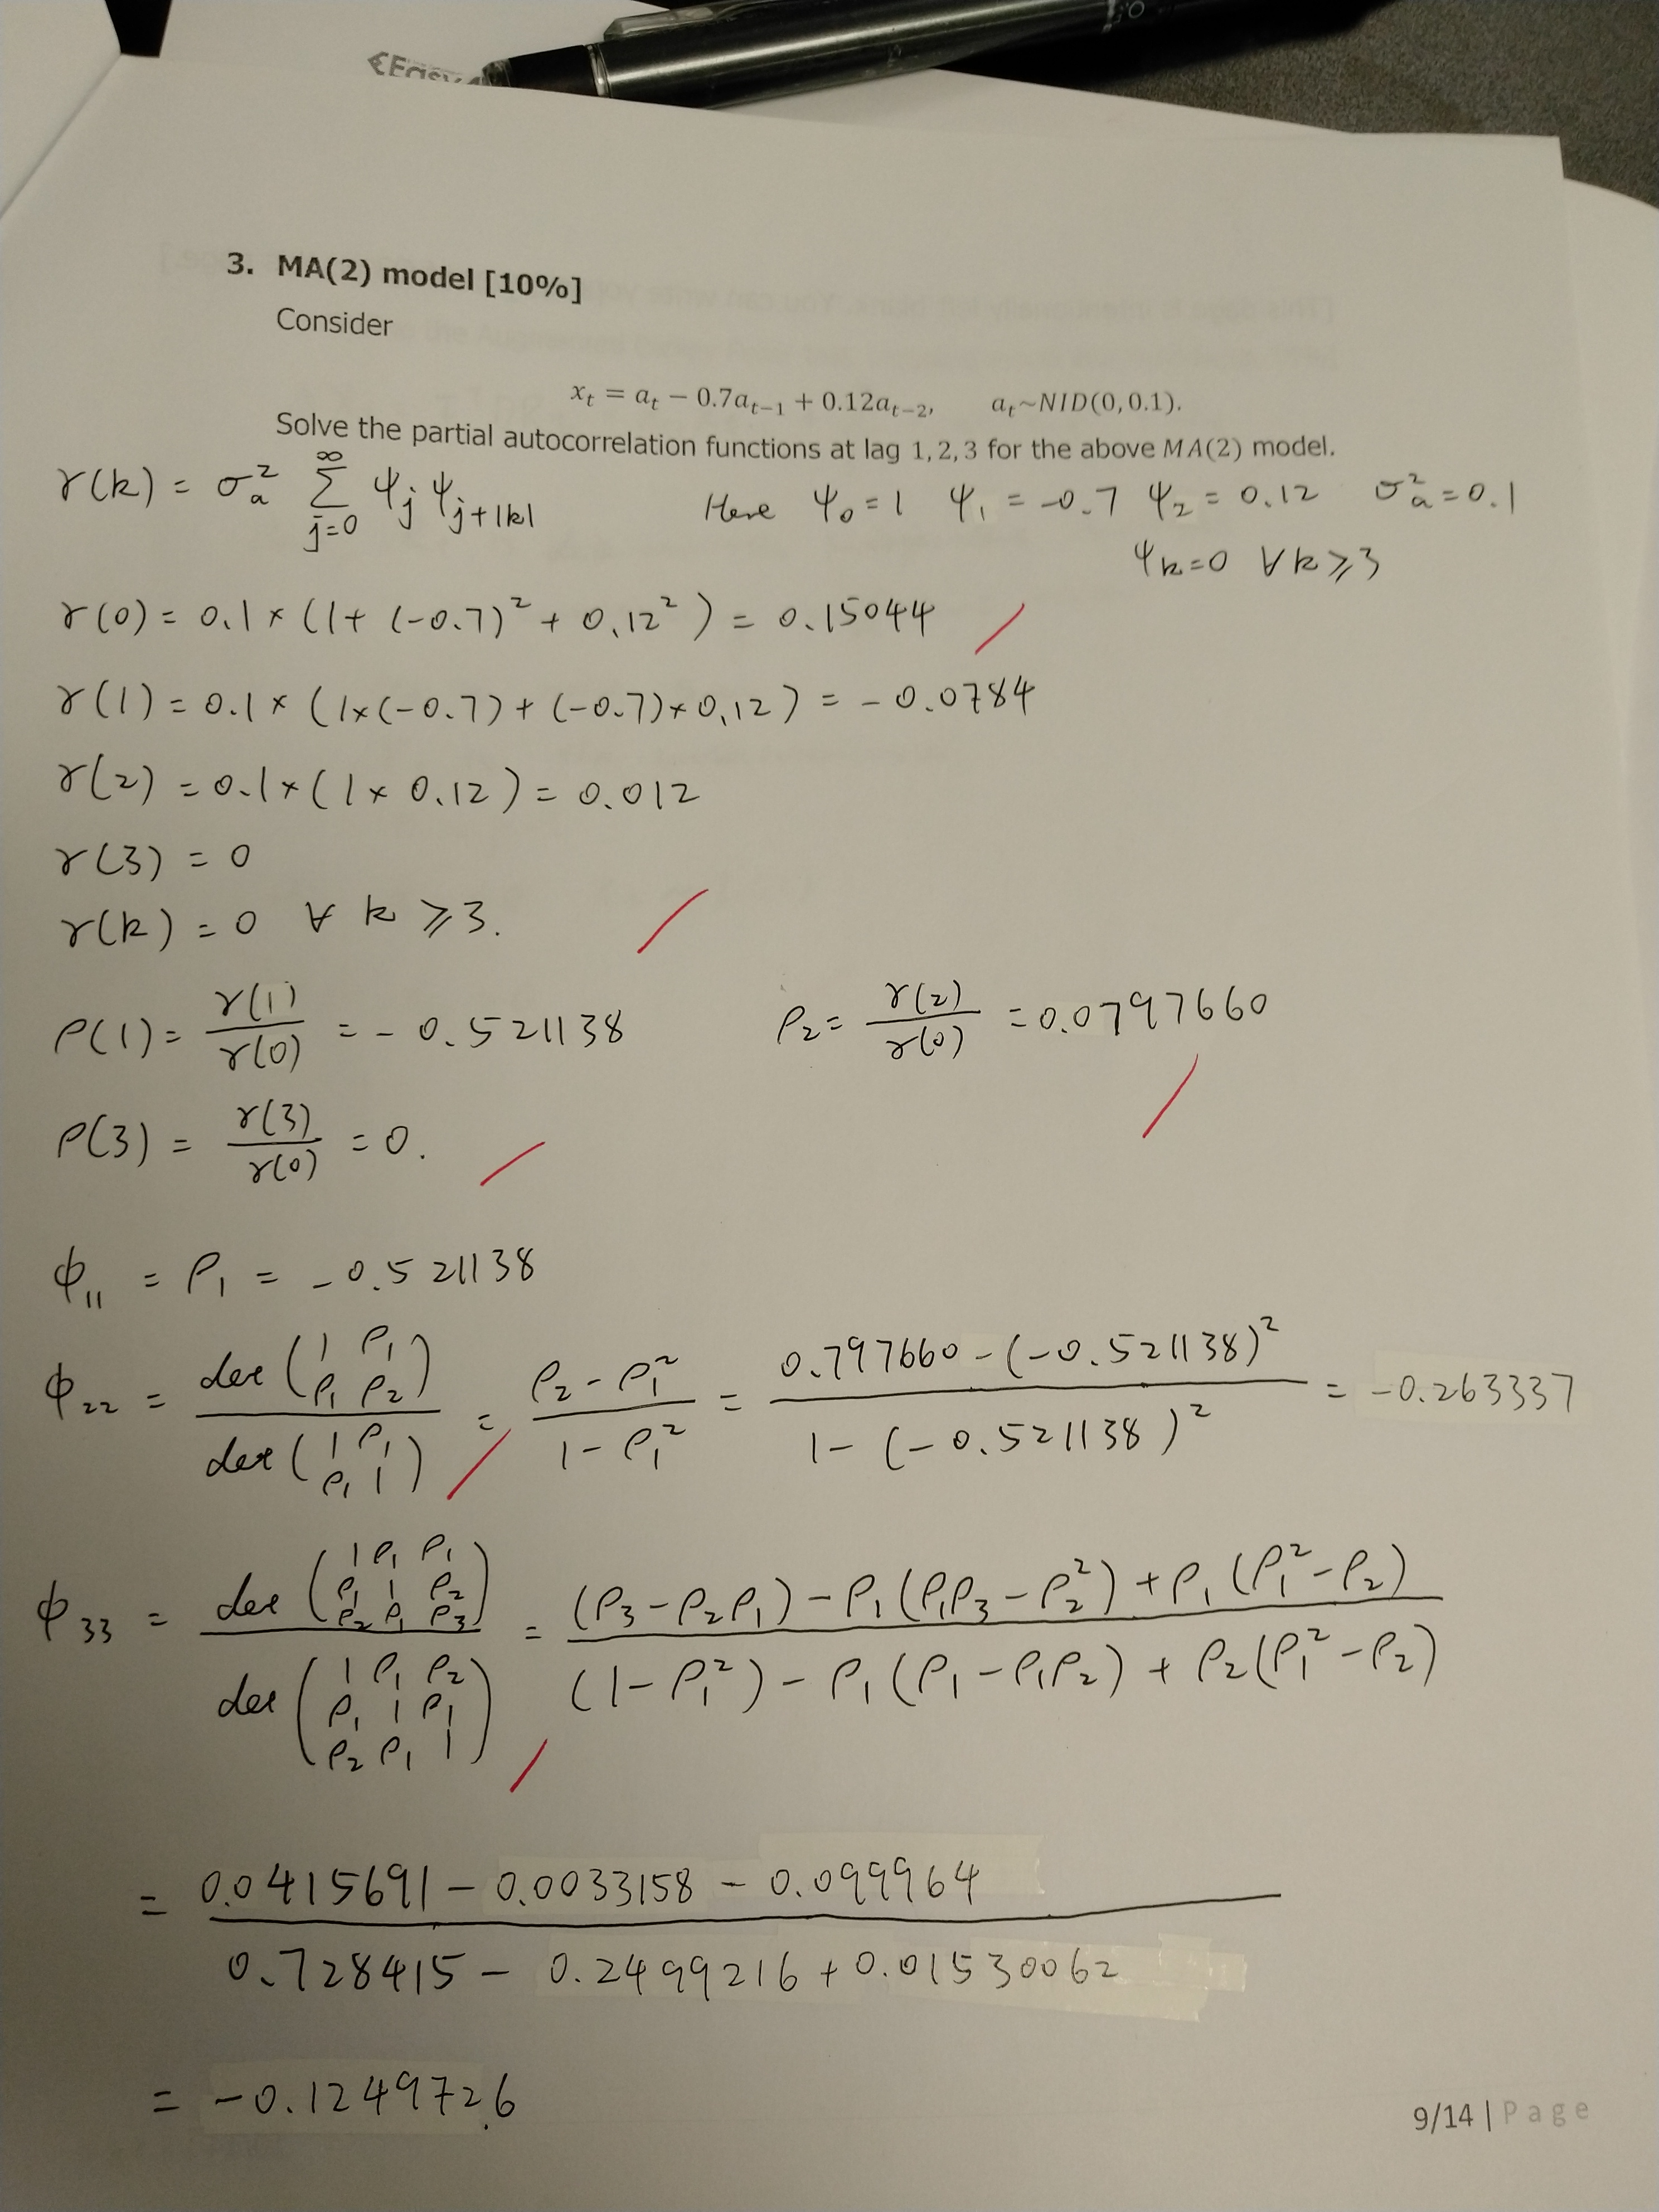 €Easy
3. MA(2) model [10%]
Consider
x_t = a_t − 0.7a_{t−1} + 0.12a_{t−2}, a_t~NID(0, 0.1).
Solve the partial autocorrelation functions at lag 1, 2, 3 for the above MA(2) model.
γ(k) = σ_a^2 ∑_{j=0}^{∞} ψ_j ψ_{j+|k|} Here ψ_0 = 1 ψ_1 = -0.7 ψ_2 = 0.12 σ_a^2 = 0.1
ψ_k = 0 ∀ k ⩾ 3
γ(0) = 0.1 × (1 + (-0.7)^2 + 0.12^2) = 0.15044
γ(1) = 0.1 × (1×(-0.7) + (-0.7)×0.12) = -0.0784
γ(2) = 0.1 × (1 × 0.12) = 0.012
γ(3) = 0
γ(k) = 0 ∀ k ⩾ 3.
ρ(1) = γ(1)/γ(0) = -0.521138 ρ_2 = γ(2)/γ(0) = 0.0797660
ρ(3) = γ(3)/γ(0) = 0.
ϕ_11 = ρ_1 = -0.521138
ϕ_22 = det(1 ρ_1 ρ_1 ρ_2) / det(1 ρ_1 ρ_1 1) = (ρ_2 - ρ_1^2) / (1 - ρ_1^2) = (0.797660 - (-0.521138)^2) / (1 - (-0.521138)^2) = -0.263337
ϕ_33 = det(1 ρ_1 ρ_1 ρ_1 1 ρ_2 ρ_2 ρ_1 ρ_3) / det(1 ρ_1 ρ_2 ρ_1 1 ρ_1 ρ_2 ρ_1 1) = ((ρ_3 - ρ_2ρ_1) - ρ_1(ρ_1ρ_3 - ρ_2^2) + ρ_1(ρ_1^2 - ρ_2)) / ((1 - ρ_1^2) - ρ_1(ρ_1 - ρ_1ρ_2) + ρ_2(ρ_1^2 - ρ_2))
= (0.0415691 - 0.0033158 - 0.099964) / (0.728415 - 0.2499216 + 0.01530062)
= -0.1249726
9/14 | Page